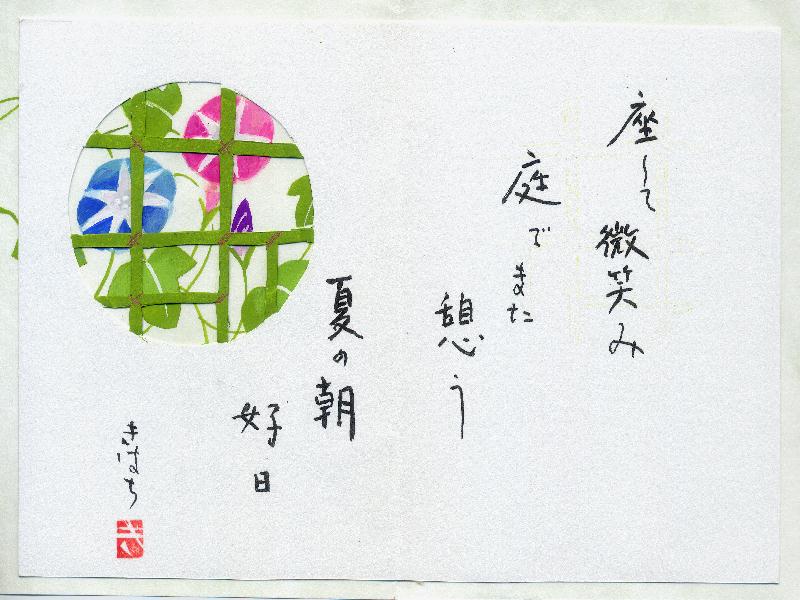 座して微笑み
庭でまた
憩う
夏の朝
好日
きはち